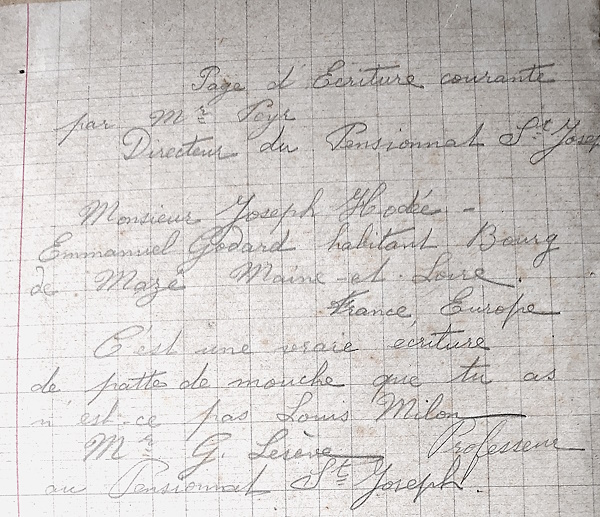 Page d'Ecriture courante
par Mr Peyr
Directeur du Pensionnat St Josep
Monsieur Joseph Hodée -
Emmanuel Godard habitant Bourg
de Mazé Maine-et-Loire.
France, Europe
C'est une vraie écriture
de patte de mouche que tu as
n'est-ce pas Louis Milon
Mr G. Lesève Professeur
au Pensionnat St Joseph.